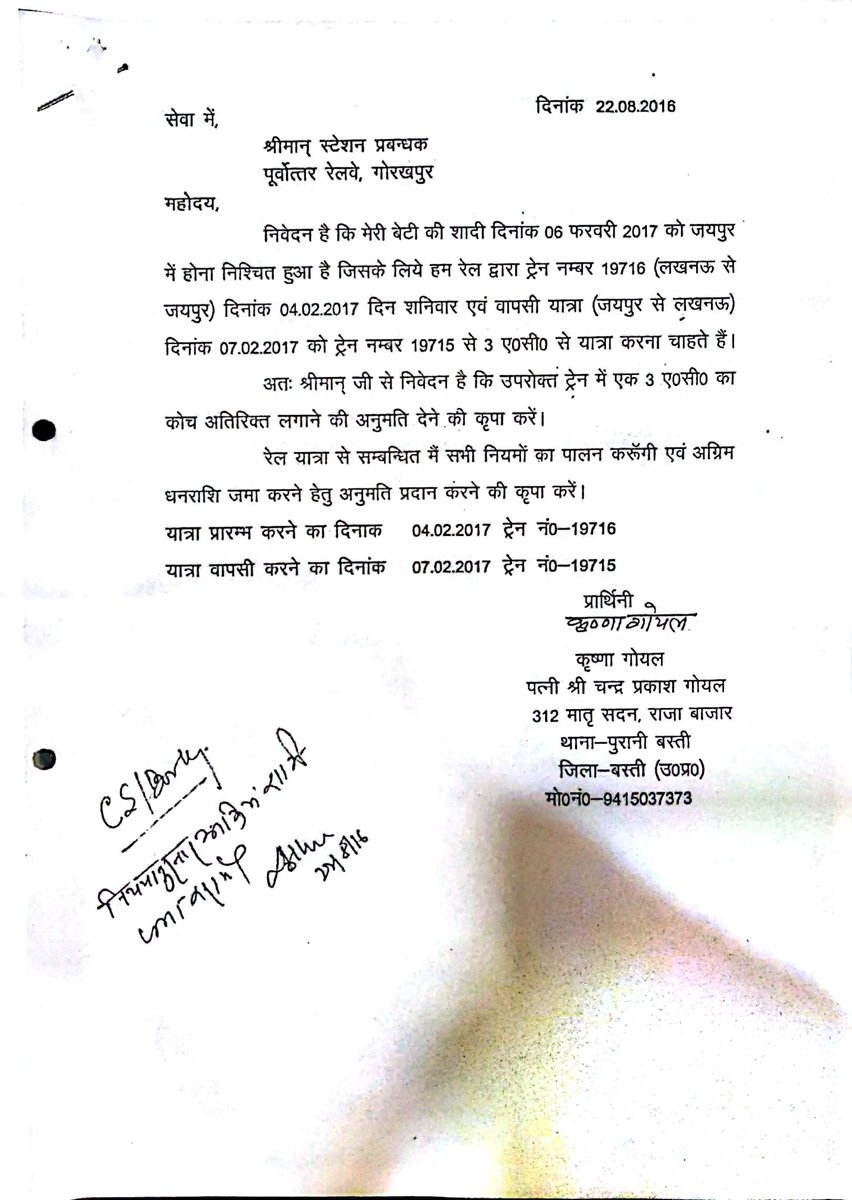 दिनांक 22.08.2016
सेवा में,
श्रीमान् स्टेशन प्रबन्धक
पूर्वोत्तर रेलवे, गोरखपुर
महोदय,
निवेदन है कि मेरी बेटी की शादी दिनांक 06 फरवरी 2017 को जयपुर
में होना निश्चित हुआ है जिसके लिये हम रेल द्वारा ट्रेन नम्बर 19716 (लखनऊ से
जयपुर) दिनांक 04.02.2017 दिन शनिवार एवं वापसी यात्रा (जयपुर से लखनऊ)
दिनांक 07.02.2017 को ट्रेन नम्बर 19715 से 3 ए0सी0 से यात्रा करना चाहते हैं।
अतः श्रीमान् जी से निवेदन है कि उपरोक्त ट्रेन में एक 3 ए0सी0 का
कोच अतिरिक्त लगाने की अनुमति देने की कृपा करें।
रेल यात्रा से सम्बन्धित मैं सभी नियमों का पालन करूॅगी एवं अग्रिम
धनराशि जमा करने हेतु अनुमति प्रदान करने की कृपा करें।
यात्रा प्रारम्भ करने का दिनाक 04.02.2017 ट्रेन नं0–19716
यात्रा वापसी करने का दिनांक 07.02.2017 ट्रेन नं0–19715
प्रार्थिनी
कृष्णा गोयल
कृष्णा गोयल
पत्नी श्री चन्द्र प्रकाश गोयल
312 मातृ सदन, राजा बाजार
थाना–पुरानी बस्ती
जिला–बस्ती (उ0प्र0)
मो0नं0–9415037373